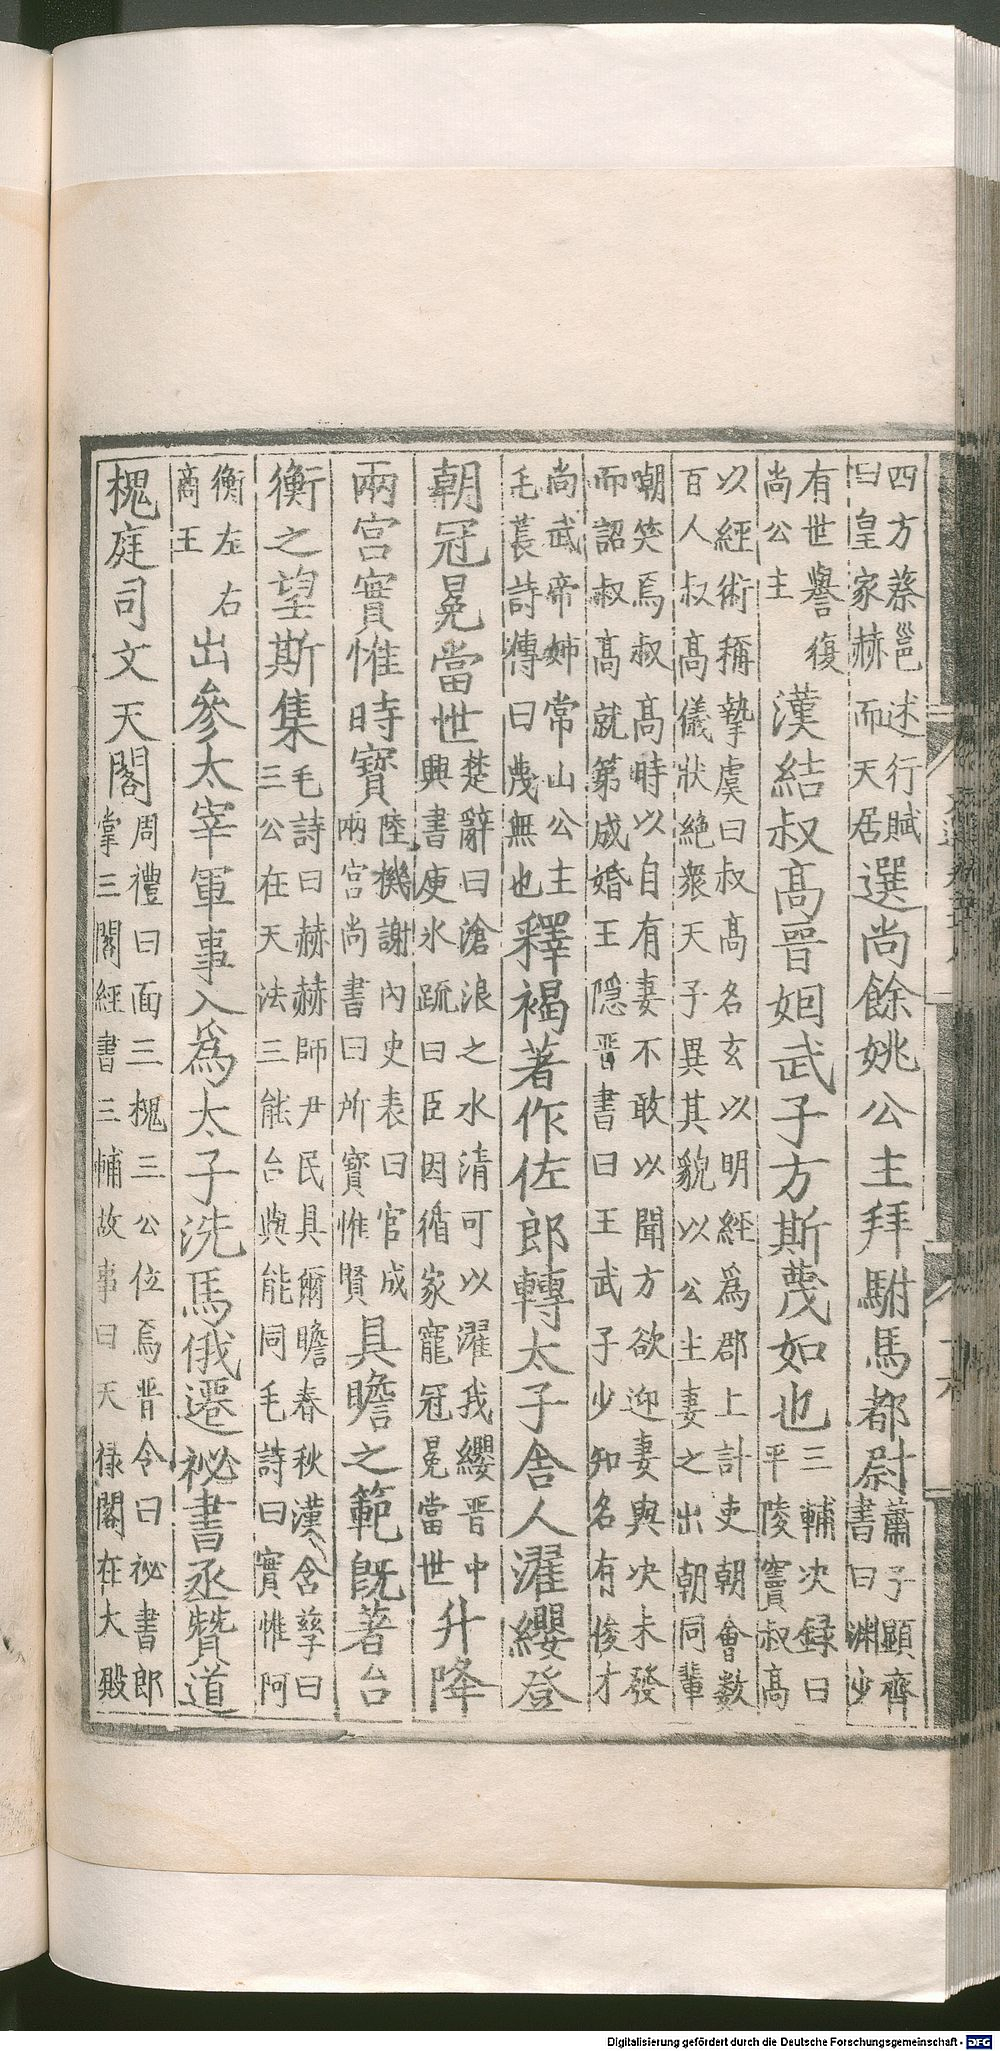 四方蔡邕述行賦
曰皇家赫而天居
選尚餘姚公主拜駙馬都尉
蕭子顯齊
書曰淵少
有世譽復
尚公主
漢結叔髙晉姻武子方斯蔑如也
三輔決録曰
平陵竇叔髙
以經術稱摯虞曰叔髙名玄以明經爲郡上計吏朝會数
百人叔髙儀狀絶衆天子異其貌以公主妻之出朝同輩
嘲笑焉叔髙時以自有妻不敢以聞方欲迎妻與决未發
而詔叔髙就第成婚王隠晉書曰王武子少知名有俊才
尚武帝姊常山公主
毛萇詩傳曰蔑無也
釋褐著作佐郎轉太子舎人濯纓登
朝冠冕當世
楚辭曰滄浪之水清可以濯我纓晉中
興書庾氷䟽曰臣因循家寵冠冕當世
升降
兩宫實惟時寳
陸機謝內史表曰官成
兩宫尚書曰所寳惟賢
具瞻之範旣著台
衡之望斯集
毛詩曰赫赫師尹民具爾瞻春秋漢含孳曰
三公在天法三能台與能同毛詩曰實惟阿
衡左右
商王
出參太宰軍事入爲太子洗馬俄遷祕書丞贊道
槐庭司文天閣
周禮曰面三槐三公位焉晉令曰祕書郎
掌三閣經書三輔故事曰天禄閣在大殿
Digitalisierung gefördert durch die Deutsche Forschungsgemeinschaft - DFG